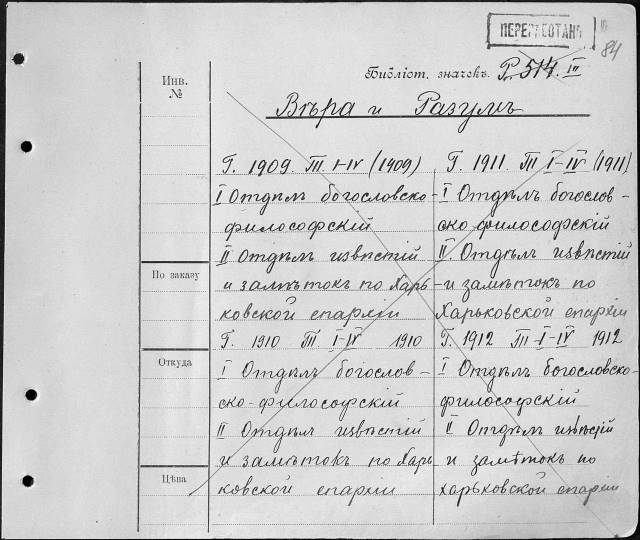 ПЕРЕРАБОТАНО
84
Библіот. значекъ. Р. 514. IV
Инв.
№
Вѣра и Разумъ
Г. 1909. Т. I-IV (1909)
I Отдѣлъ богословско-
философскій
II Отдѣлъ извѣстій
и замѣтокъ по Харь-
ковской епархіи
Г. 1910 Т. I-IV 1910
I Отдѣлъ богослов-
ско-философскій
II Отдѣлъ извѣстій
и замѣтокъ по Харь
ковской епархіи
Г. 1911. Т. I-IV (1911)
I Отдѣлъ богослов-
ско-философскій
II. Отдѣлъ извѣстій
и замѣтокъ по
Харьковской епархіи
Г. 1912 Т. I-IV 1912
I Отдѣлъ богословско-
философскій
II Отдѣлъ извѣстій
и замѣтокъ по
харьковской епархіи
По заказу
Откуда
Цѣна